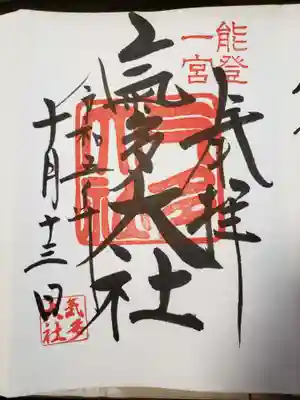 能登
一宮
奉拝
氣多大社
令和五年
十月十三日
氣多
大社